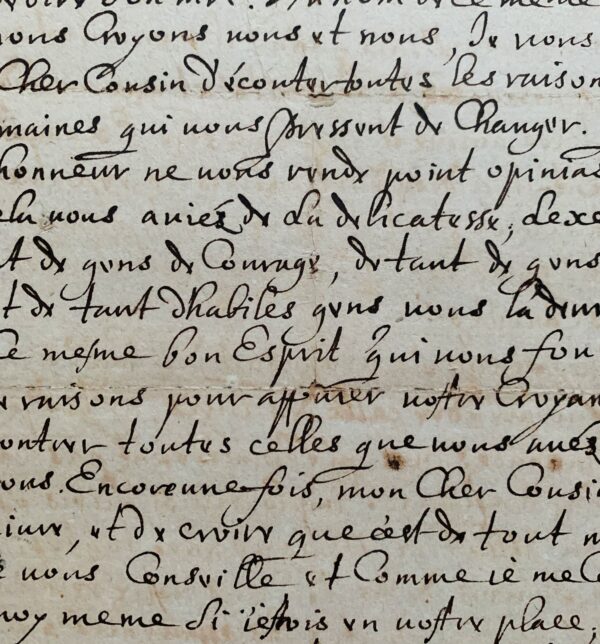 nous Croyons vous et nous, Je vous
Cher Cousin d'écouter toutes les raison
maines qui vous pressent de Changer.
honneur ne vous rende point opinias
ela vous auiéz de la delicatesse, Lexe
t de gens de Courage, de tant de gens
t de tant dhabiles gens vous la deur
e mesme bon Esprit qui vous fou
raisons pour appuier vostre Croyan
ontrer toutes celles que vous auéz
ons. Encore une fois, mon Cher Cousi
iure, et de croire que c'est de tout m
vous Conseille et Comme ie me C
moy meme Si i'estois en vostre place.